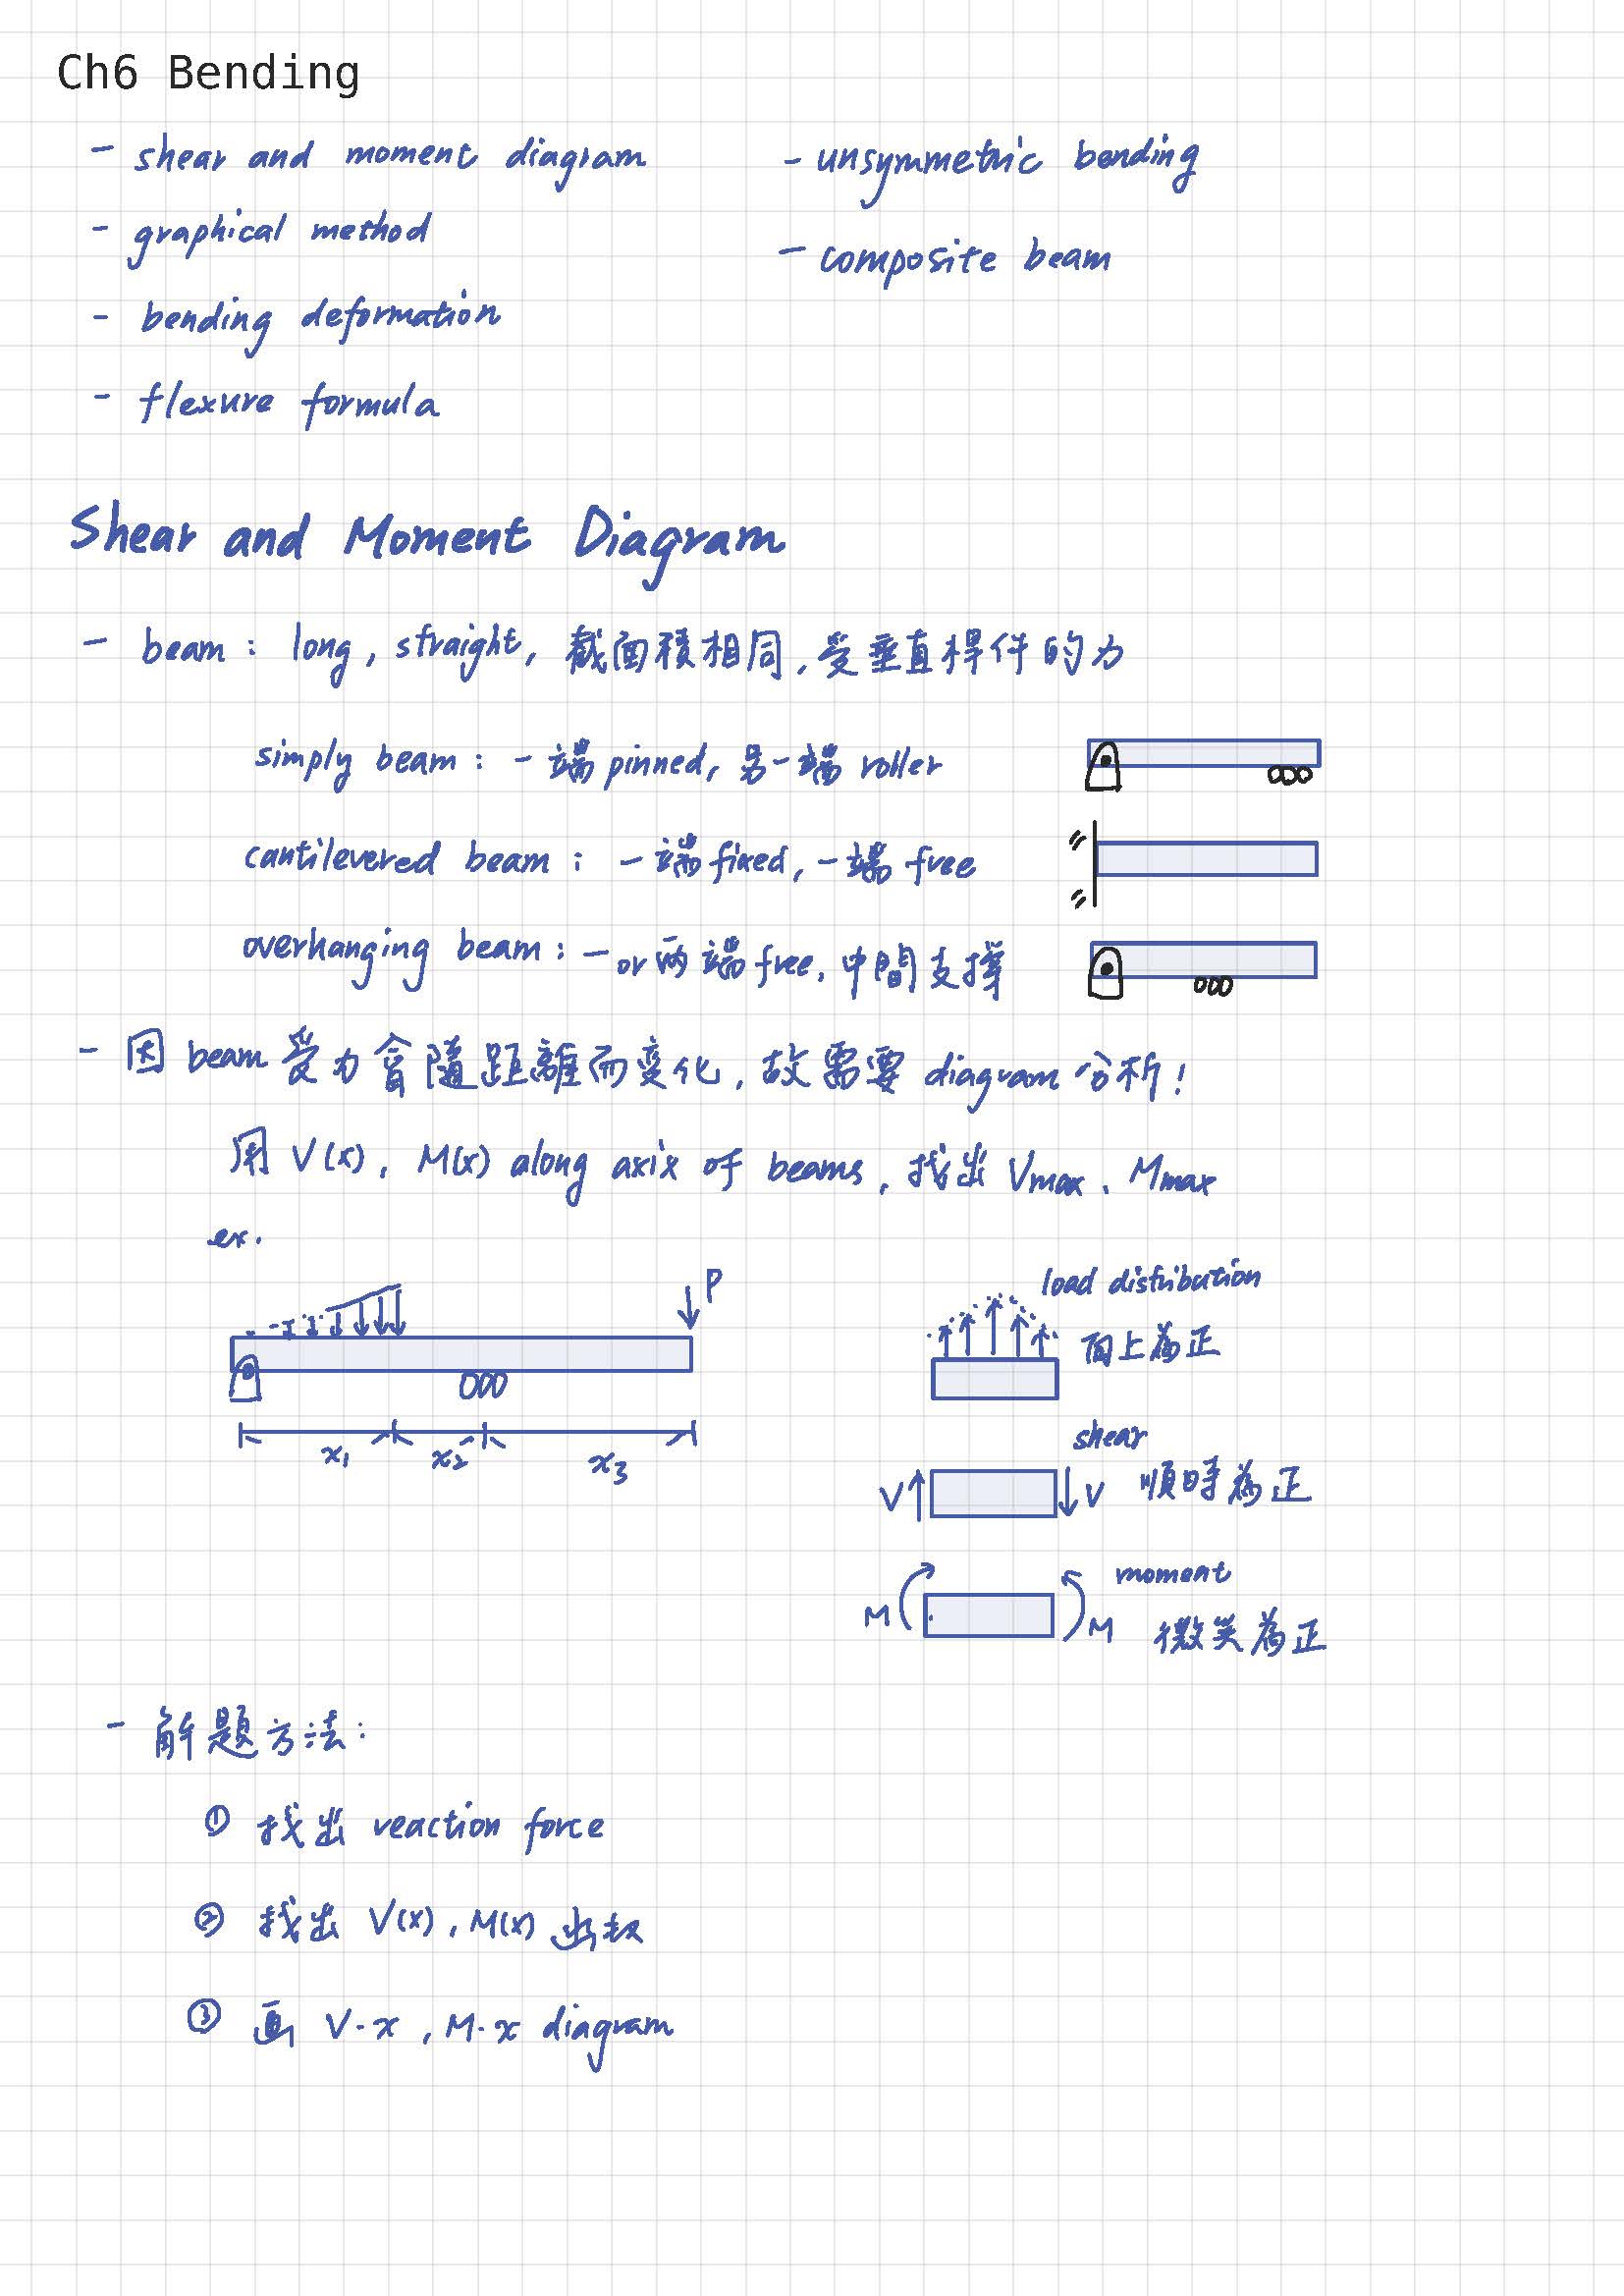 Ch6 Bending
- shear and moment diagram
- graphical method
- bending deformation
- flexure formula
- unsymmetric bending
- composite beam
Shear and Moment Diagram
- beam : long, straight, 截面積相同,受垂直桿件的力
simply beam : 一端pinned, 另一端 roller
cantilevered beam : 一端fixed, 一端free
overhanging beam : 一or兩端free, 中間支撐
- 因 beam 受力會隨距離而变化, 故需要 diagram 分析!
用 V(x), M(x) along axix of beams, 找出 Vmax、Mmax
ex.
P
x1 x2 x3
load distribution
向上為正
shear
V V 順時為正
moment
M M 微笑為正
- 解題方法:
① 找出 reaction force
② 找出 V(x), M(x)
③ 畫 V-x, M-x diagram